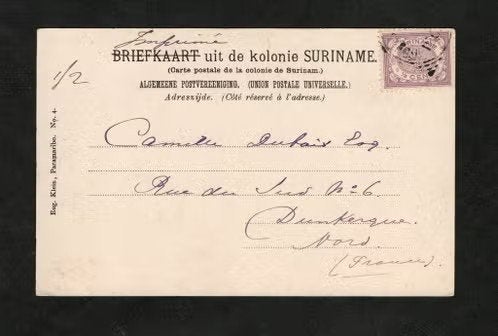 Imprimé
BRIEFKAART uit de kolonie SURINAME.
(Carte postale de la colonie de Surinam.)
ALGEMEENE POSTVEREENIGING. (UNION POSTALE UNIVERSELLE.)
Adreszijde. (Côté réservé à l'adresse.)
1/2
Eug. Klein, Paramaribo. No. 4.
Camille Dubois Esq.
Rue du Sud No 6.
Dunkerque.
Nord.
(France).